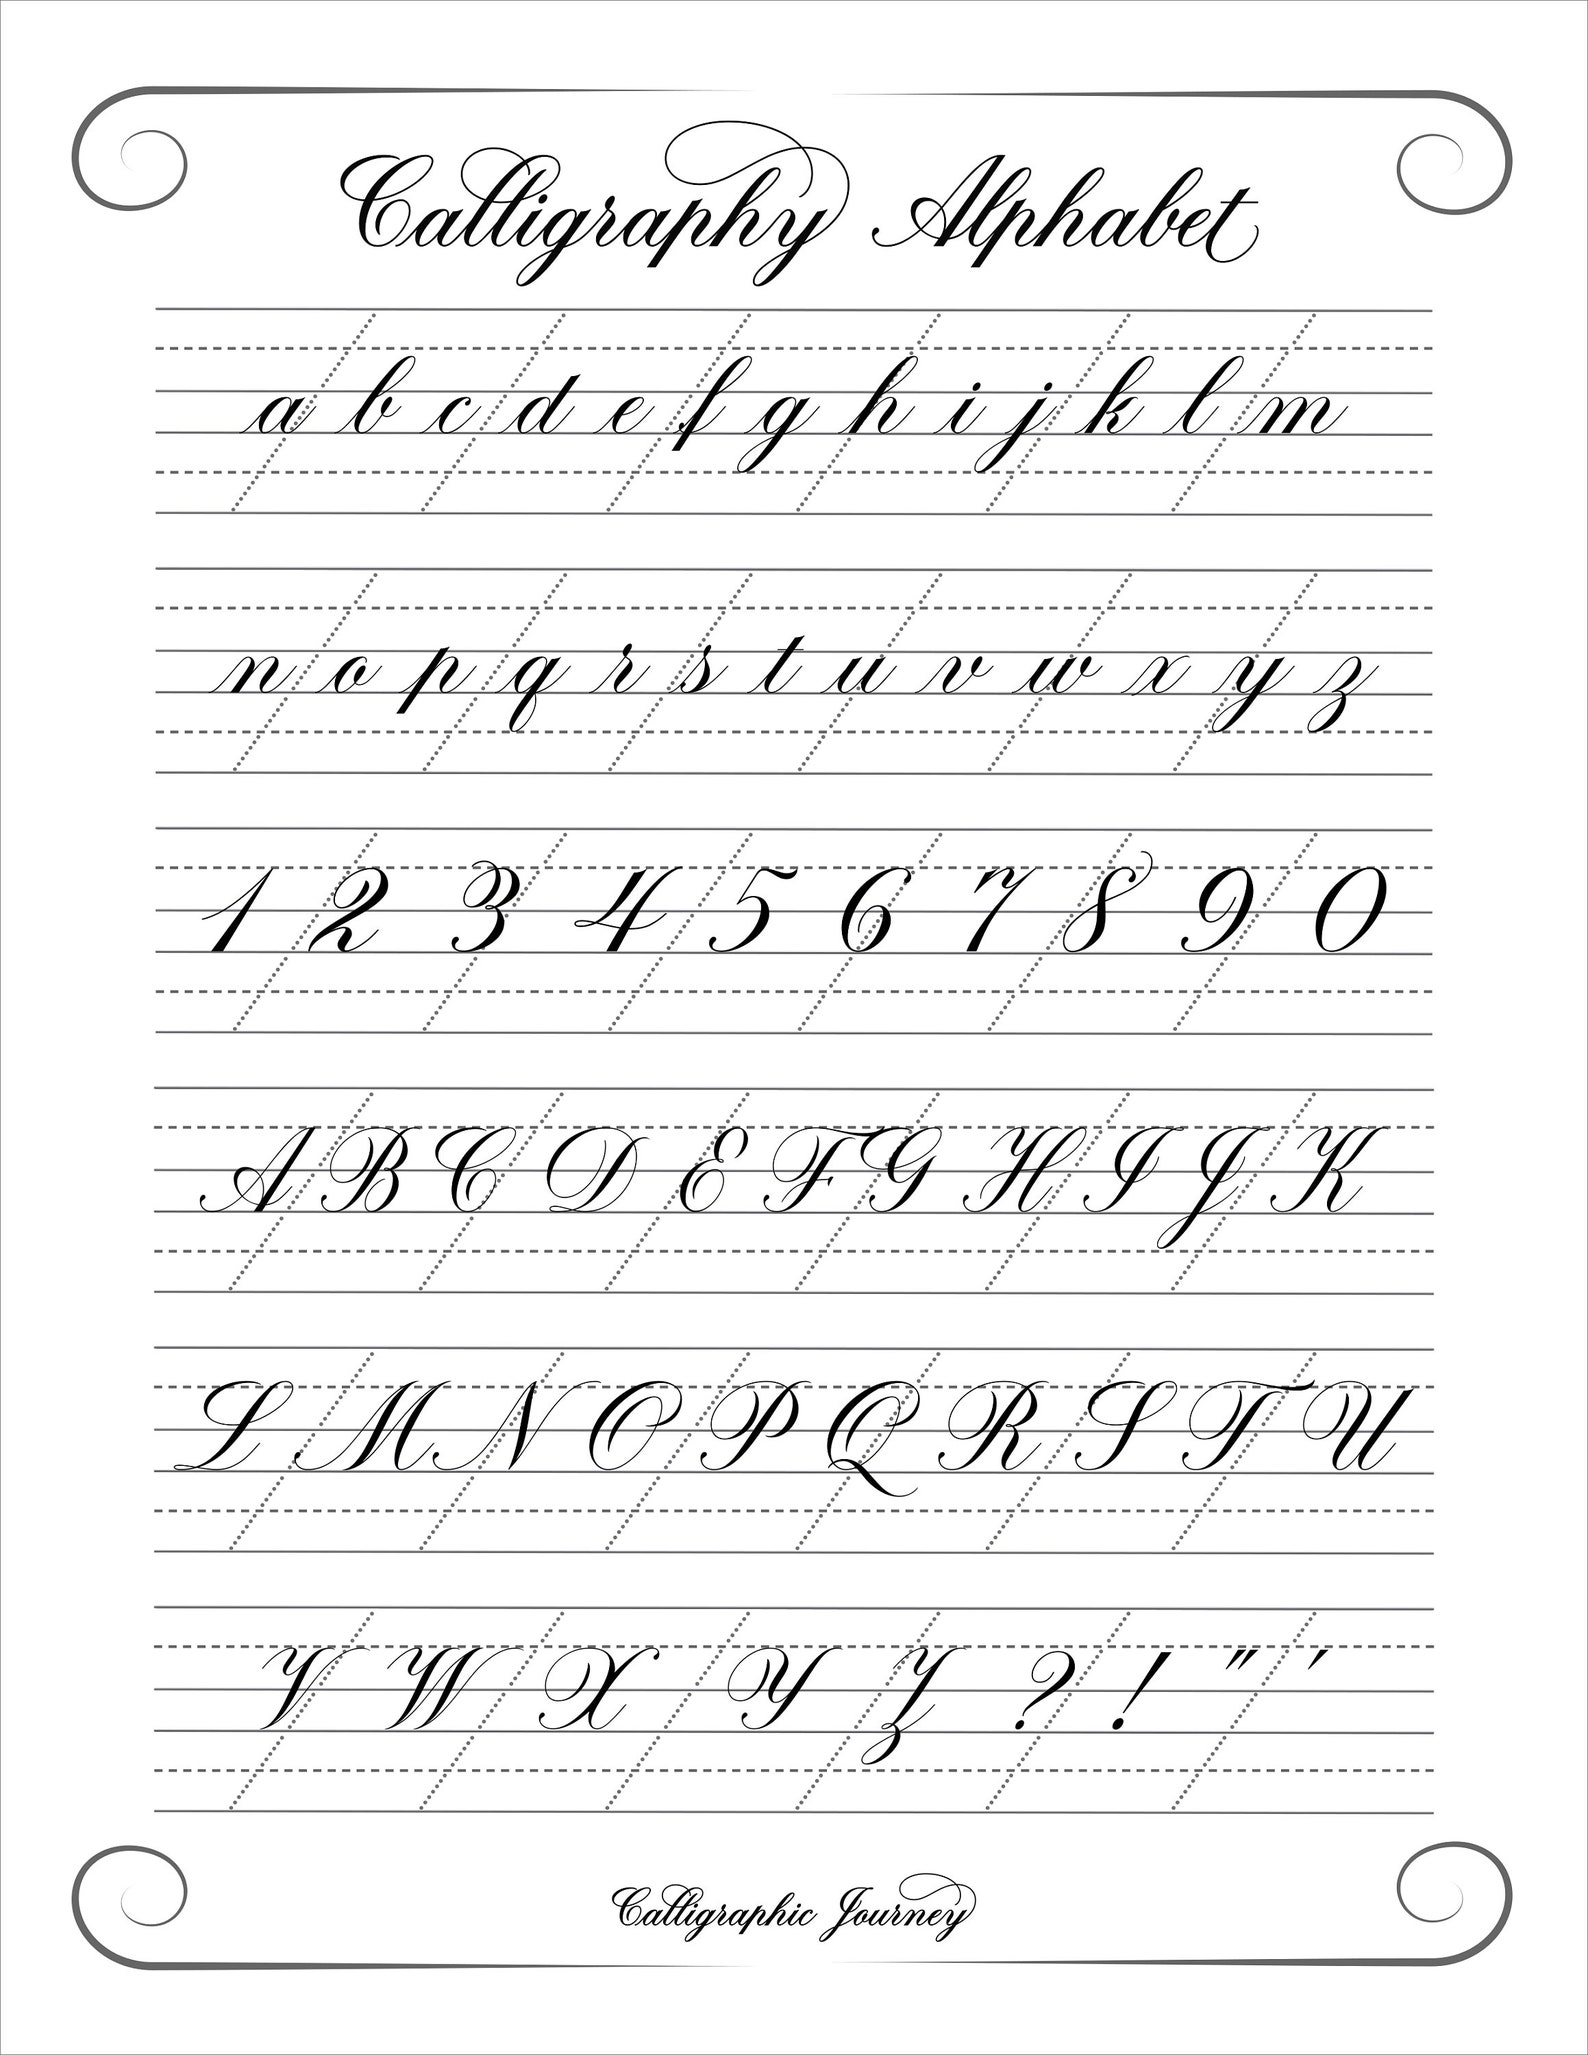 Calligraphy Alphabet
a b c d e f g h i j k l m
n o p q r s t u v w x y z
1 2 3 4 5 6 7 8 9 0
A B C D E F G H I J K
L M N O P Q R S T U
V W X Y Z ? ! " '
Calligraphic Journey